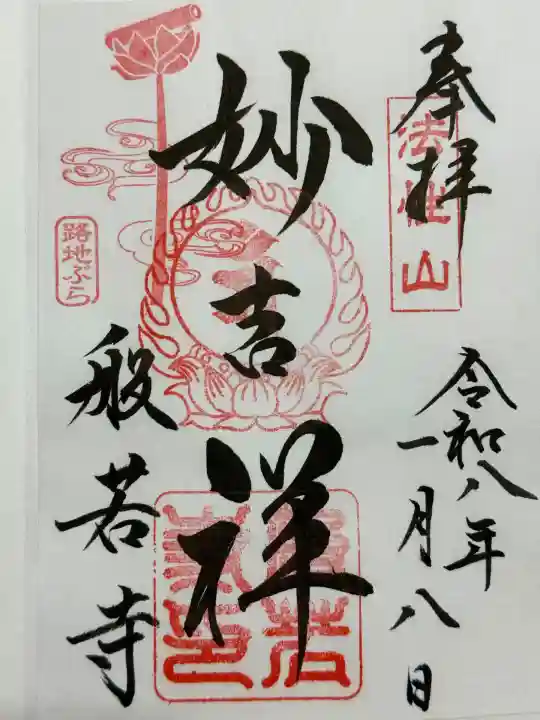 奉拝
法性山
令和八年
一月八日
妙吉祥
路地ぶら
般若寺